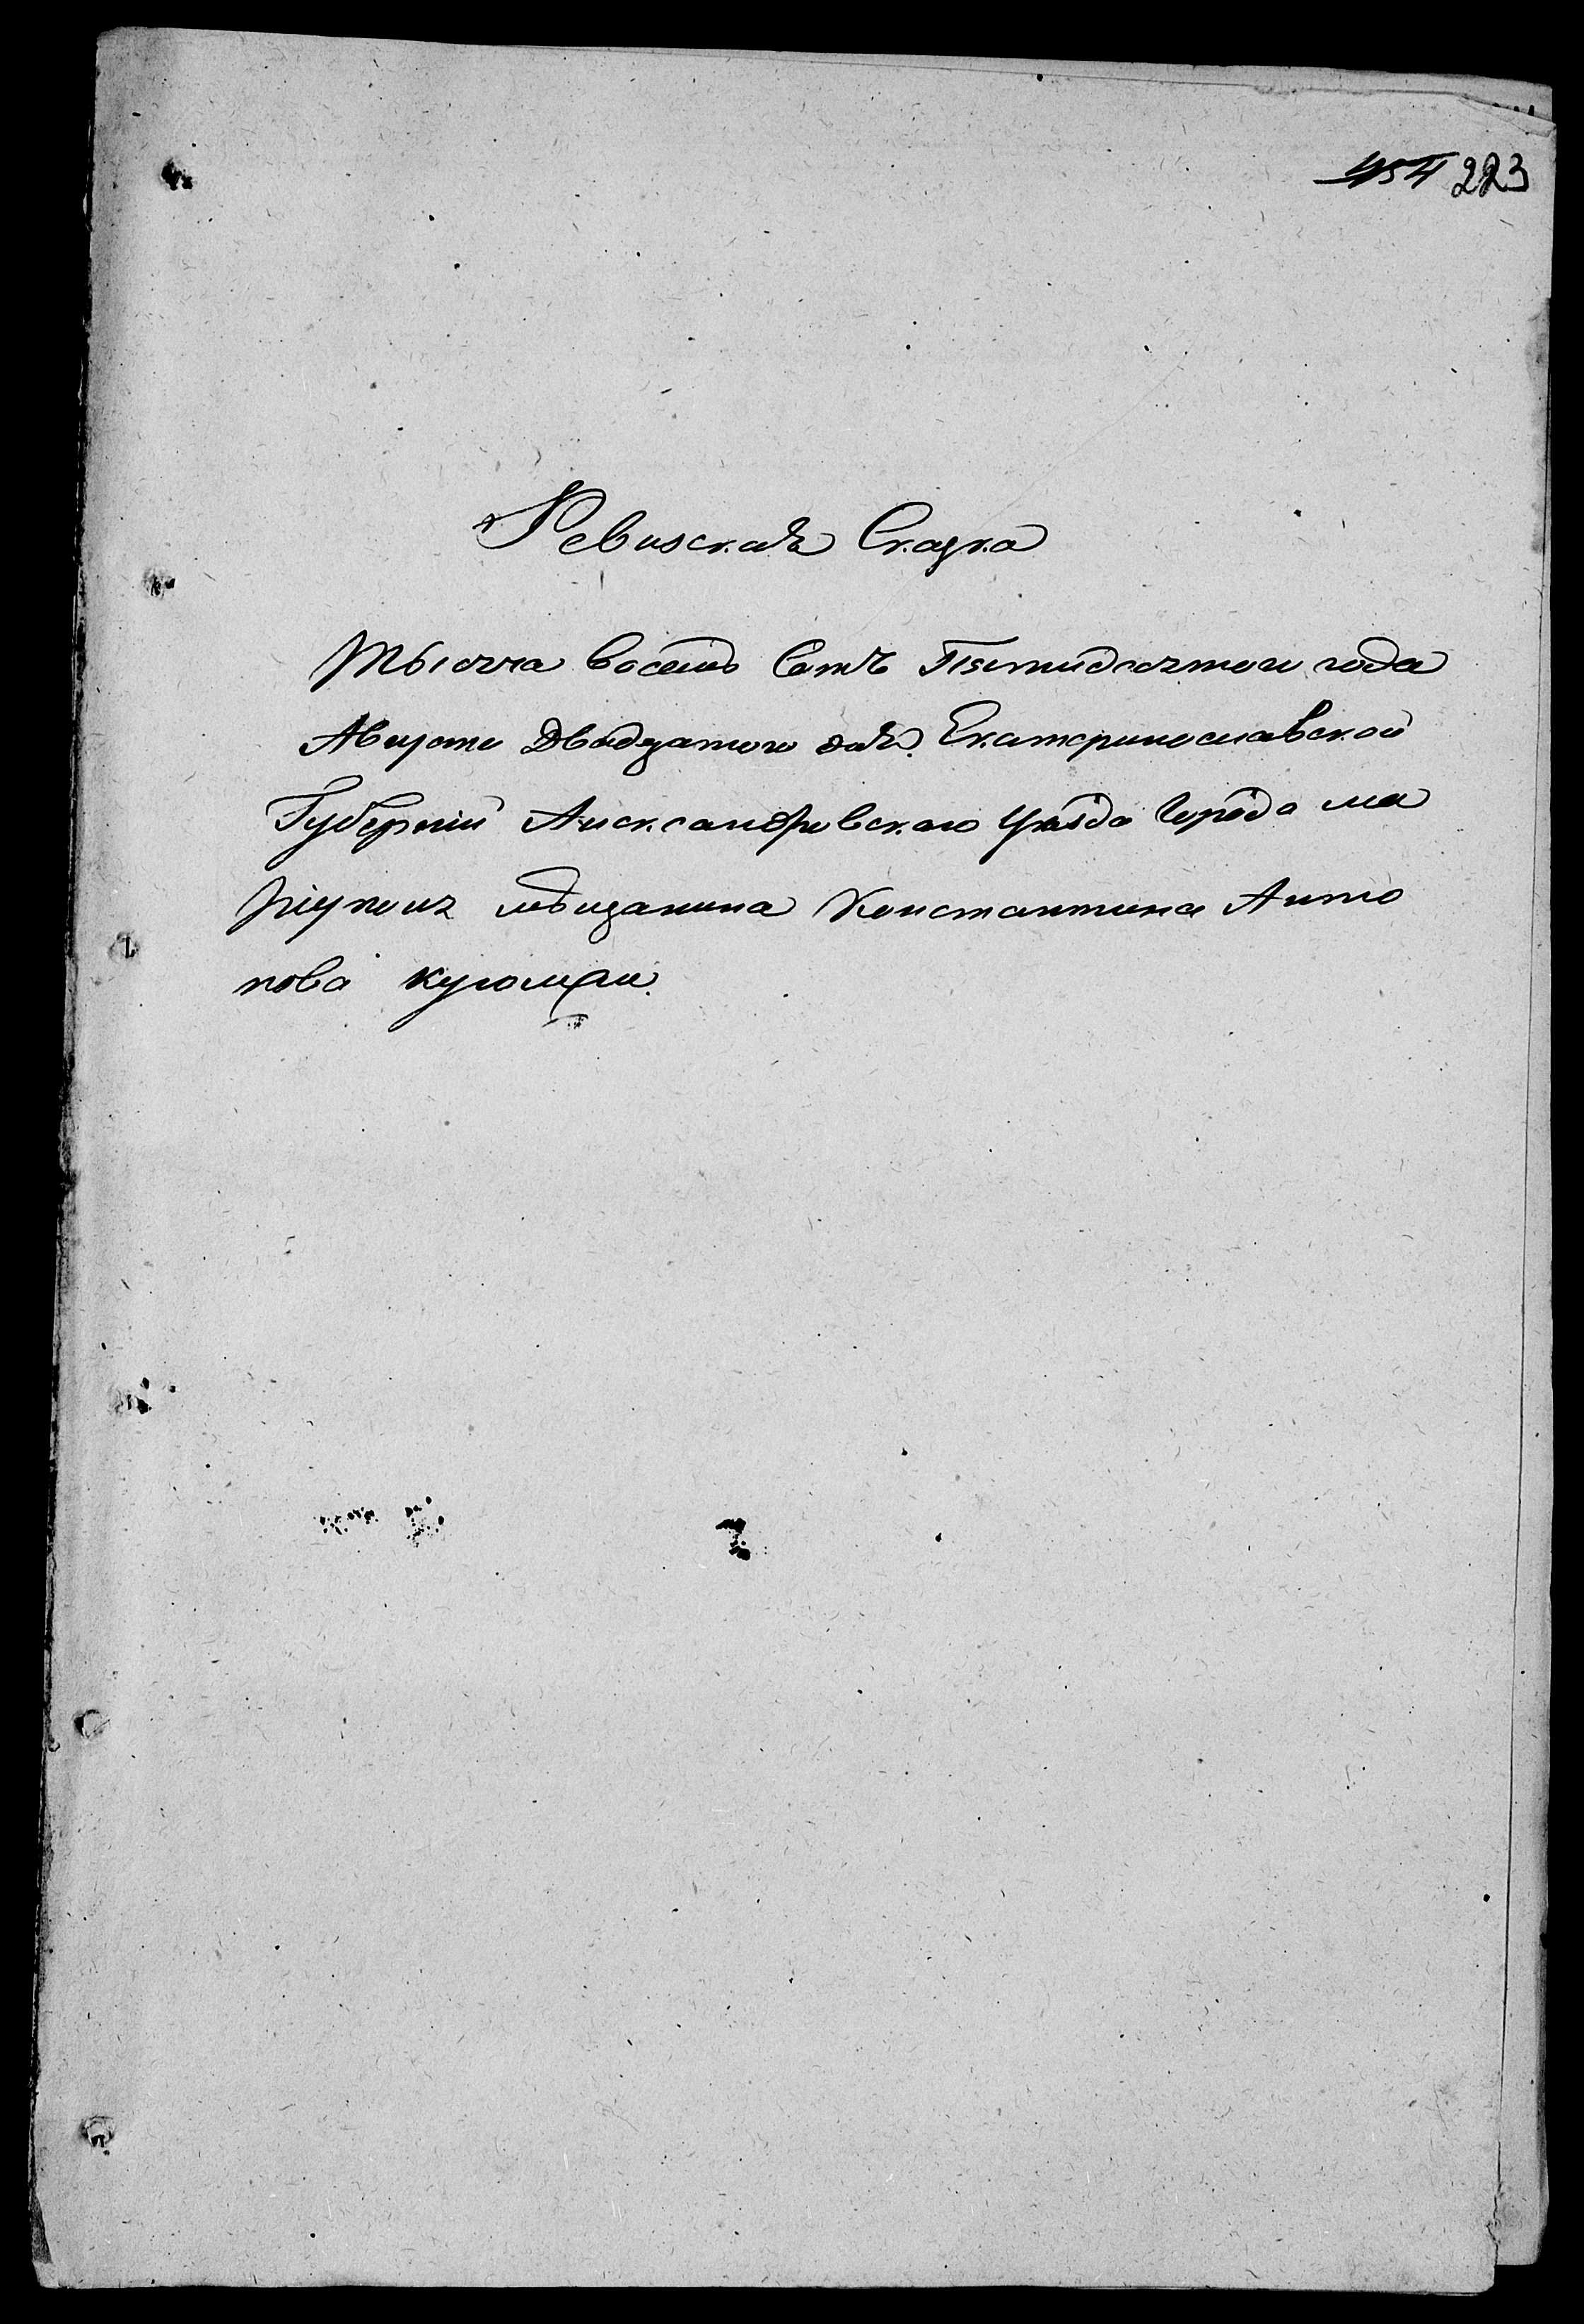 454 223
Ревиская Сказка
Тысеча восемь Сотъ Пятидесятого года
Августа Двадцатого дня. Екатеринославской
Губерний Александровского Уезда Города Ма
риуполя мещанина Константина Анто
нова